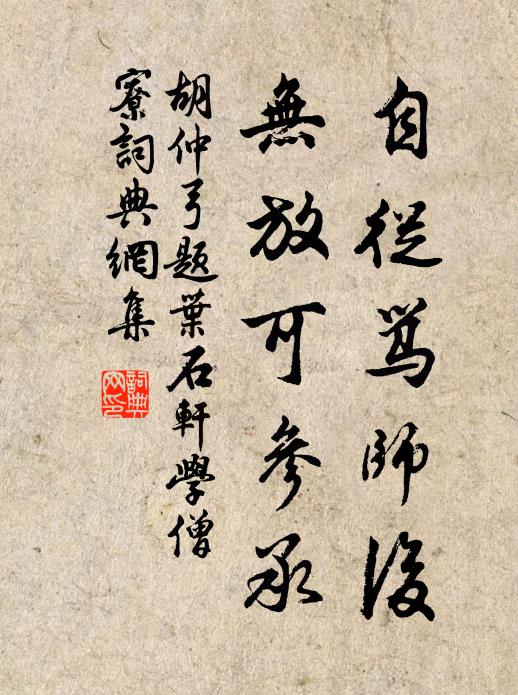 自從罵師後
無放可參承
胡仲弓題葉石軒學僧
寮詞典網集
詞典
网印